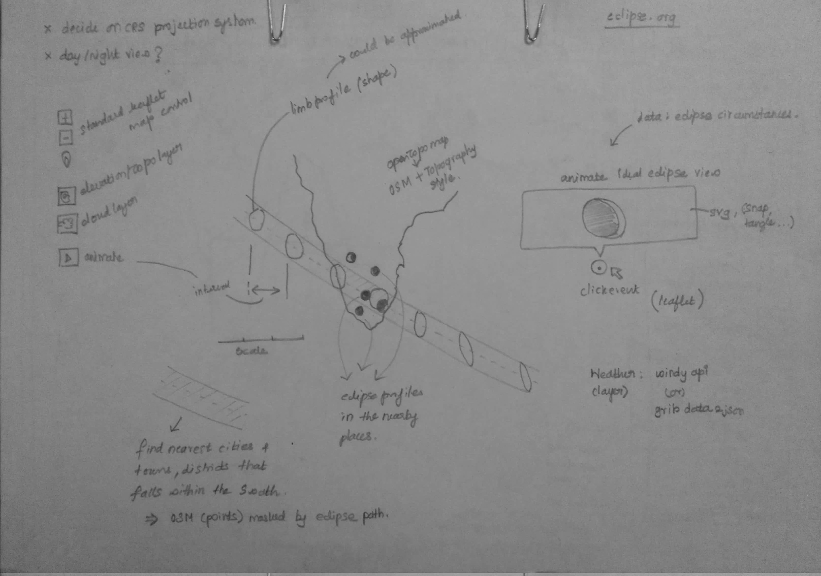 eclipse.org
× decide on CRS projection system.
× day/night view?
→ could be approximated
limb profile (shape)
+
-
standard leaflet
map control
elevation/topo layer
cloud layer
animate
interval
scale
opentopo map
OSM + Topography
style.
data: eclipse circumstances.
animate ideal eclipse view
svg, (snap,
tangle...)
click event
(leaflet)
eclipse profiles
in the nearby
places.
Weather:
(layer)
windy api
(or)
grib data 2 json
find nearest cities +
towns, districts that
falls within the swath.
⇒ OSM (points) masked by eclipse path.